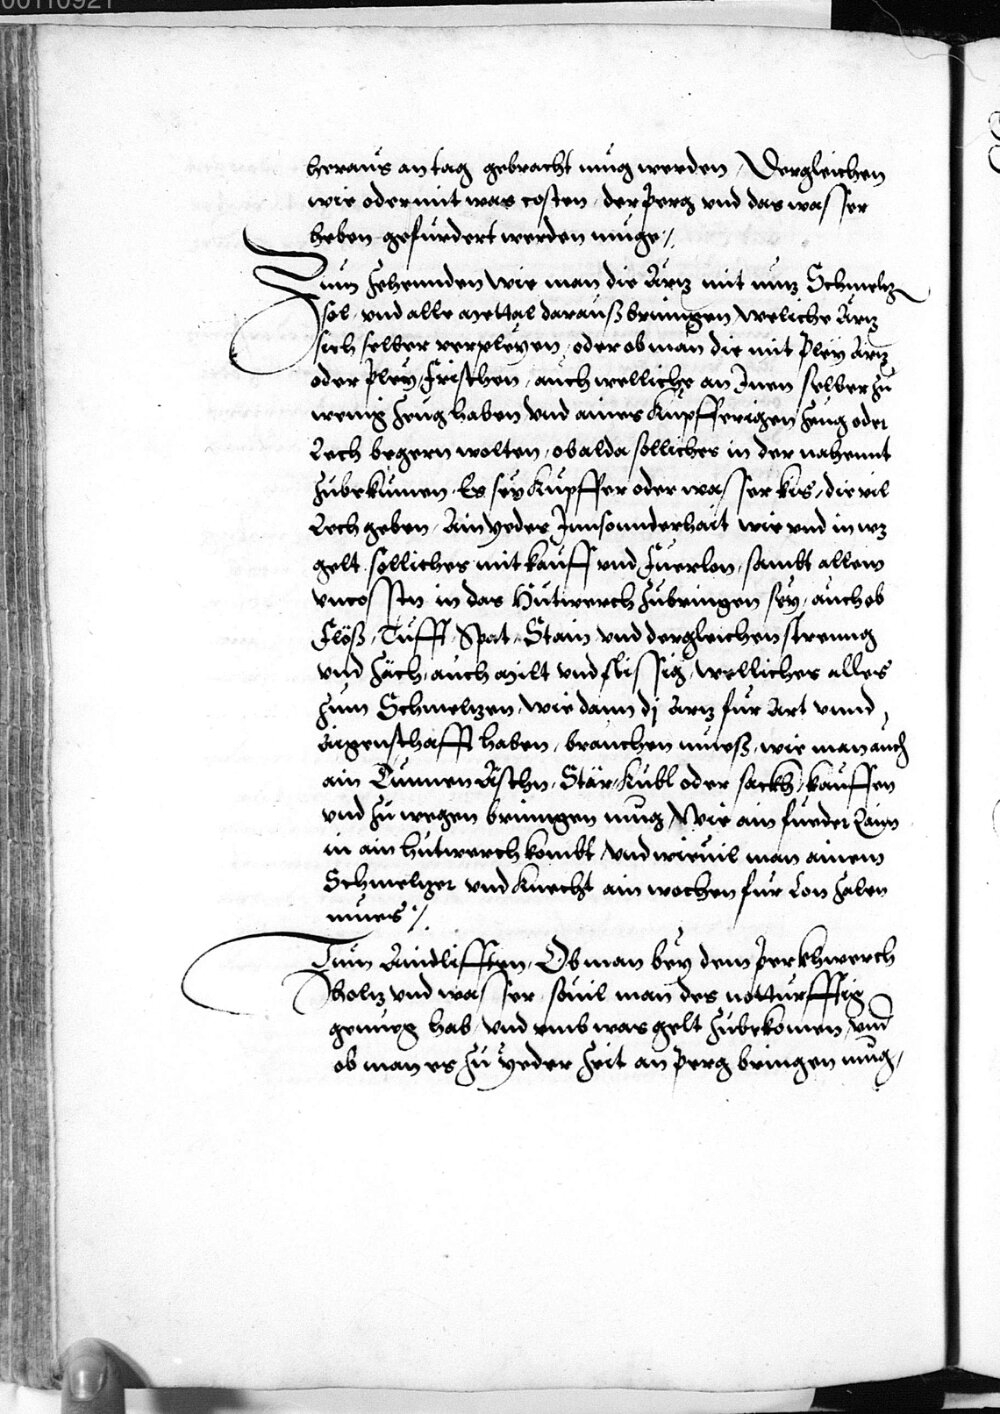 00110921
heraus an tag gebracht mug werden / Dergleichen
wie oder mit was costen, der Perg vnd das wasser
heben gefurdert werden muge /.
Zum Zehennden wie man die Ärtz mit nutz Schmeltzn
sol, vnd alle mettal darauß bringen, weliche Ärtz
sich selber verpleyen, oder ob man die mit Pley Ärtz
oder Pley, Frischen, auch welliche an Inen selber zu
wenig zeug haben vnd aines Kupfferigen zeug oder
Lech begern wolten, ob alda solliches in der nahennt
zubekumen, Es sey Kupffer oder wasser kis, die vil
Lech geben, Ain yeder Innsonnderhait wie vnd in wz
gelt solliches mit kauff vnd Fuerlon, sambt allem
vncosstn in das Hütwerch zubringen sey, auch ob
Flöß, Tufft, Spat, Stain vnd dergleichen streng
vnd zäch, auch milt vnd flissig, welliches alles
zum Schmeltzen, wie dann dj Ärtz für Art vnnd
Aigenschafft haben, brauchen muess, wie man auch
ain Tunnen Äschn, Stär, Kübl oder sackh, kauffen
vnd zu wegen bringen mug, Wie ain fueder Laim
in ain hütwerch kombt, vnd wieuil man ainem
Schmeltzer vnd Knecht ain wochen für Lon geben
mues /.
Zum Aindlifften, Ob man bey dem Perkhwerch
holtz vnd wasser, souil man des notturfftig
genueg hab, vnd vmb was gelt zubekomen, vnd
ob man es zu yeder zeit an Perg bringen mug,